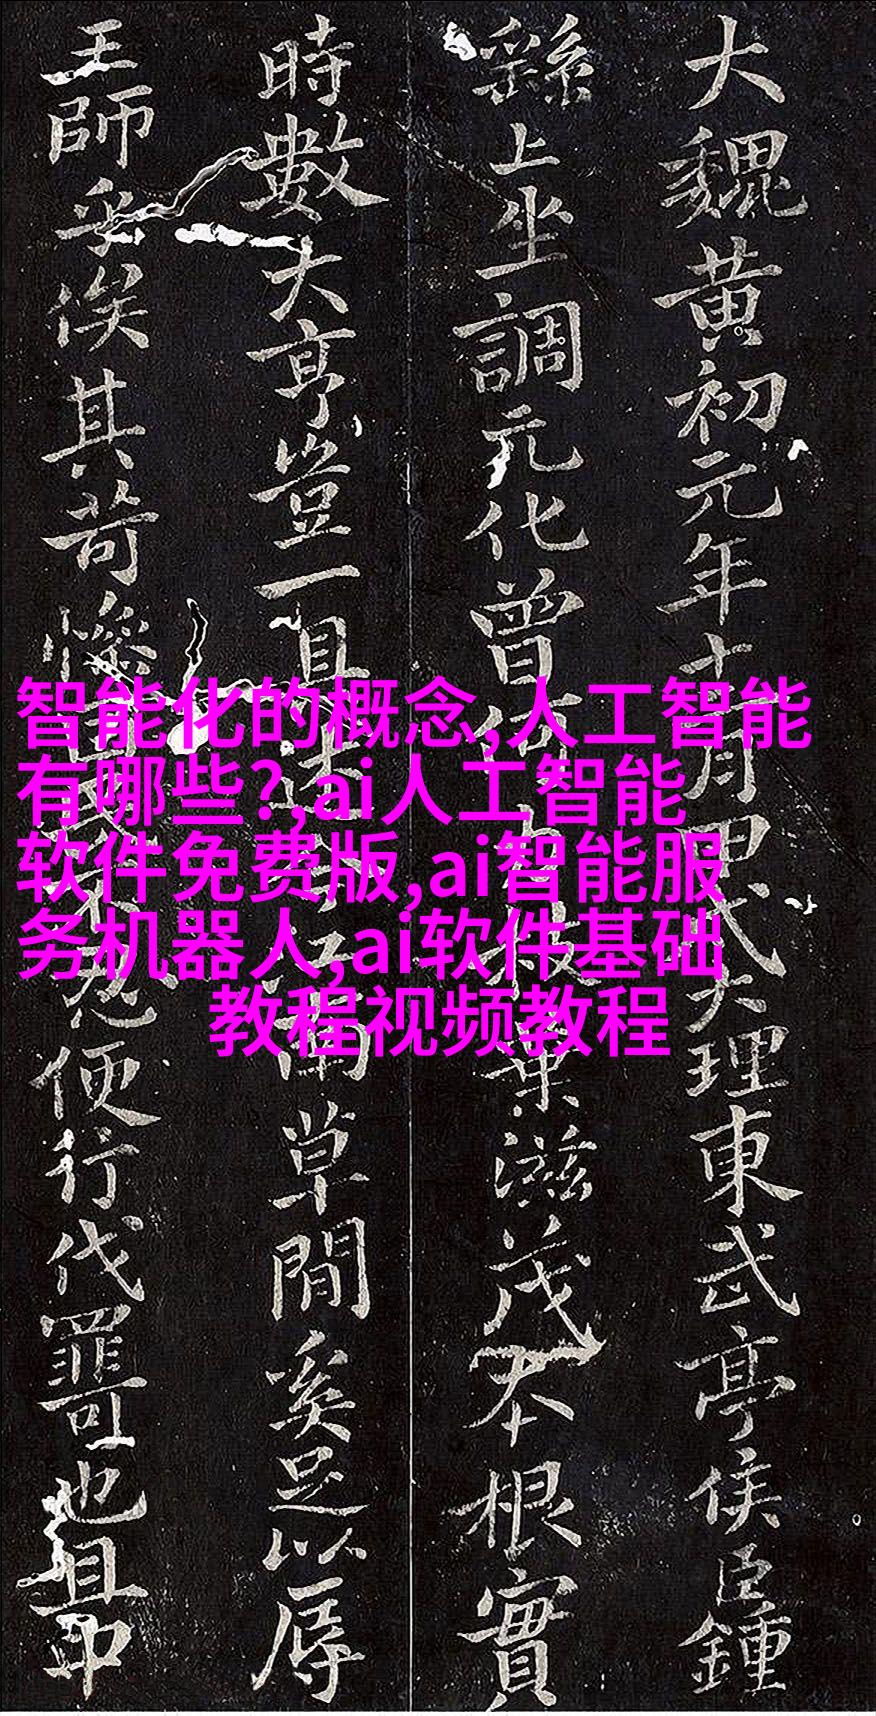 智能化的概念,人工智能
有哪些?,ai人工智能
软件免费版,ai智能服
务机器人,ai软件基础
教程视频教程
大魏黄初元年十月大理東武亭侯臣鍾
繇上坐調元化曾葉滋茂本根實
時數大亨豈一且南草間奚足以辱
王師乎俟其苛便行伐也且印